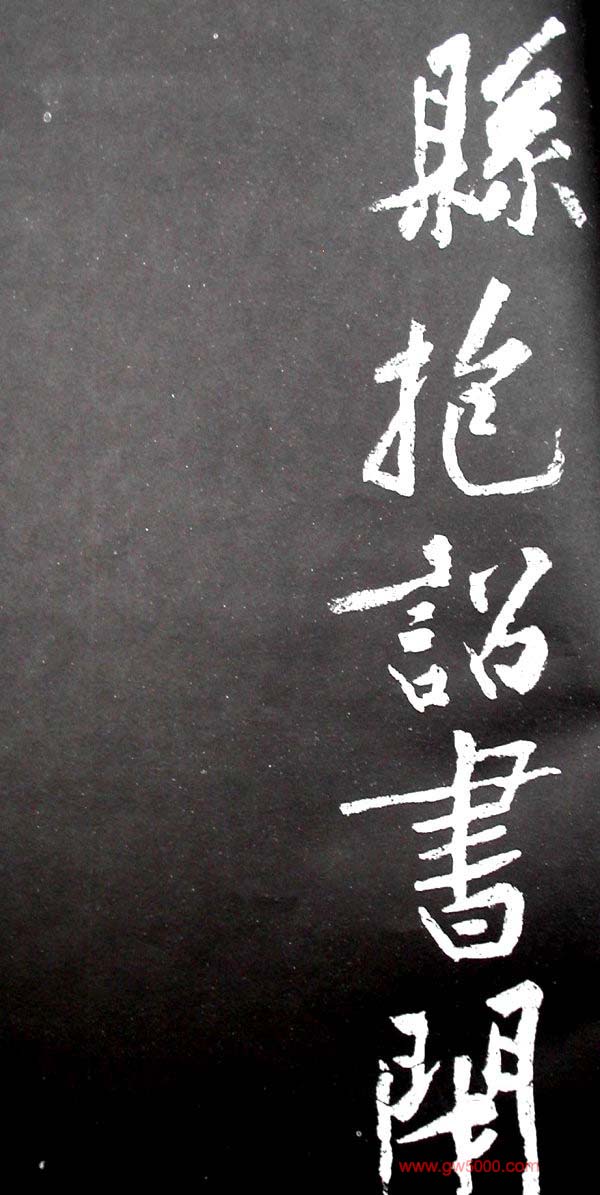 縣抱詔書開
www.gw5000.com